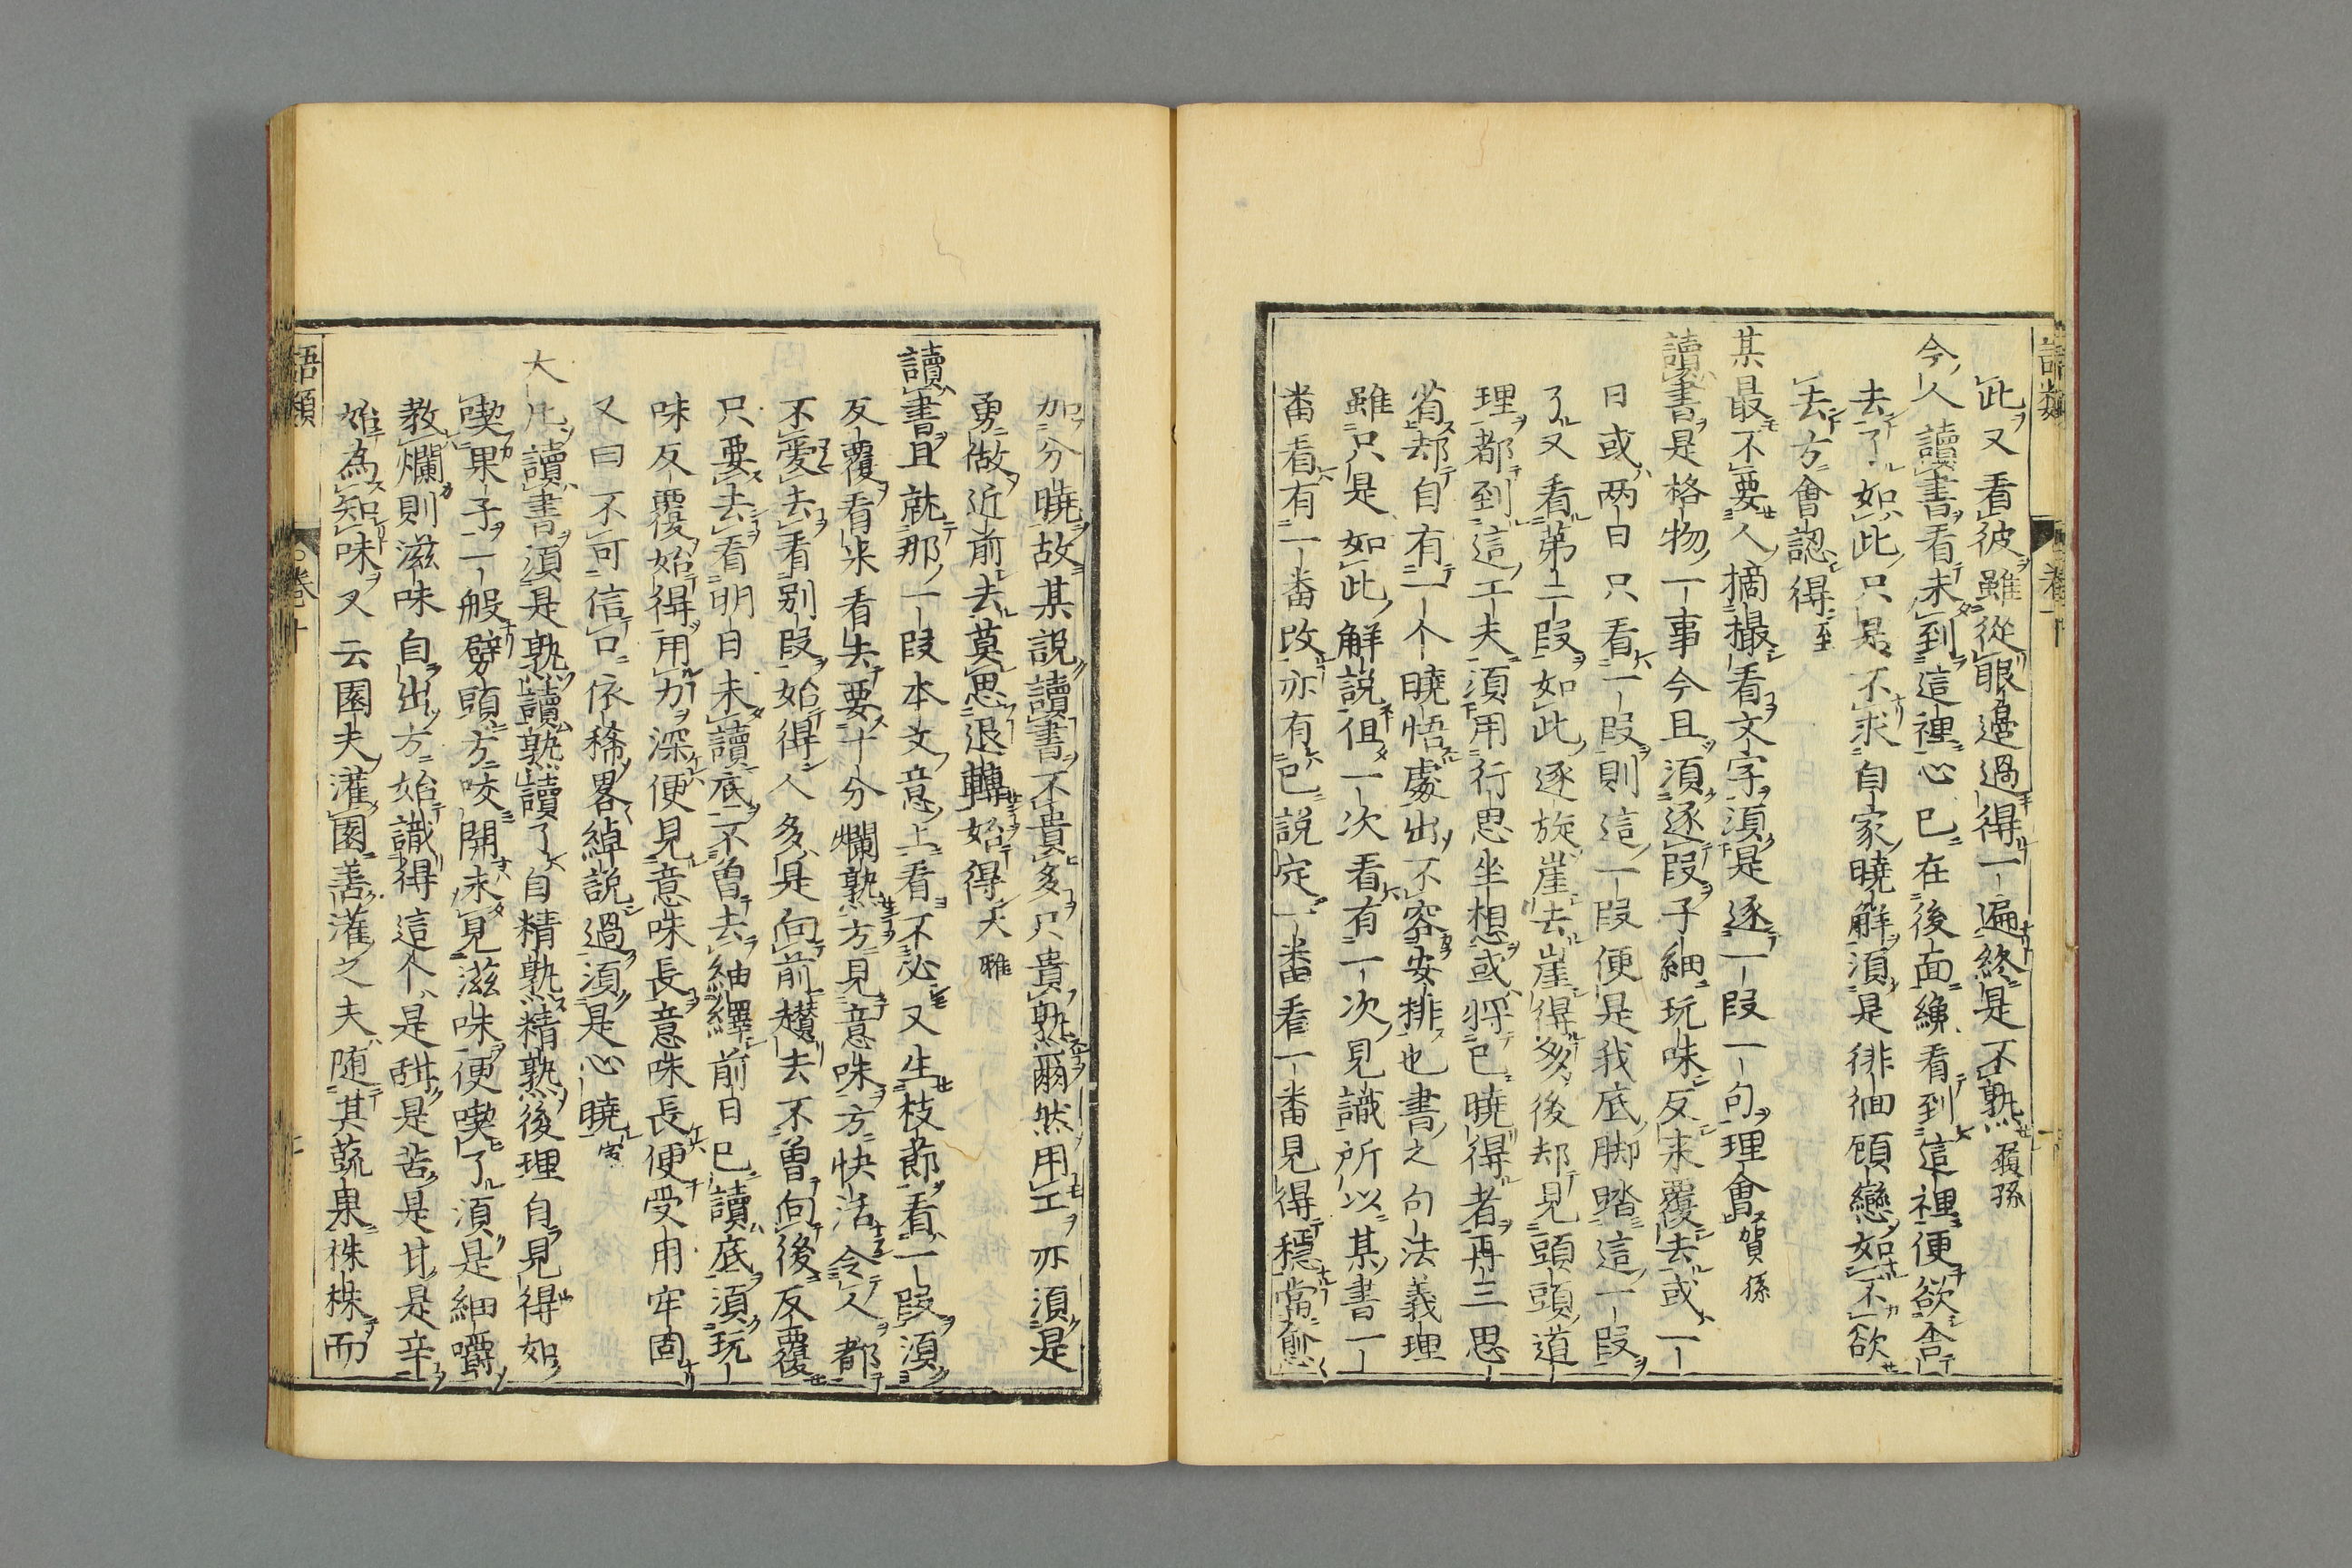 語類
卷十
此又看彼雖從眼邊過得一遍終是不熟履孫
今人讀書看未到這裡心已在後面纔看到這裡便欲舍
去了如此只是不求自家曉解須是徘徊顧戀如不欲
去方會認得至
某最不要人摘撮看文字須是逐一段一句理會賀孫
讀書是格物一事今且須逐段子細玩味反來覆去或一
日或两日只看一段則這一段便是我底脚踏這一段
了又看第二段如此逐旋崖去崖得多後却見頭頭道
理都到這工夫須用行思坐想或將已曉得者再三思
省却自有一个曉悟處出不容安排也書之句法義理
雖只是如此解說但一次看有一次見識所以某書一
番看有一番改亦有已說定一番看一番見得穩當愈
加分曉故某說讀書不貴多只貴熟爾然用工亦須是
勇做近前去莫思退轉始得大雅
讀書且就那一段本文意上看不必又生枝節看一段須
反覆看来看去要十分爛熟方見意味方快活令人都
不愛去看别段始得人多是向前趲去不曾向後反覆
只要去看明日未讀底不曾去紬繹前日已讀底須玩
味反覆始得用力深便見意味長意味長便受用牢固
又曰不可信口依稀畧綽說過須是心曉㝢
大凡讀書須是熟讀熟讀了自精熟精熟後理自見得如
喫果子一般劈頭方咬開未見滋味便喫了須是細嚼
教爛則滋味自出方始識得這个是甜是苦是甘是辛
始為知味又云園夫灌園善灌之夫随其蔬果株株而
語類
卷十